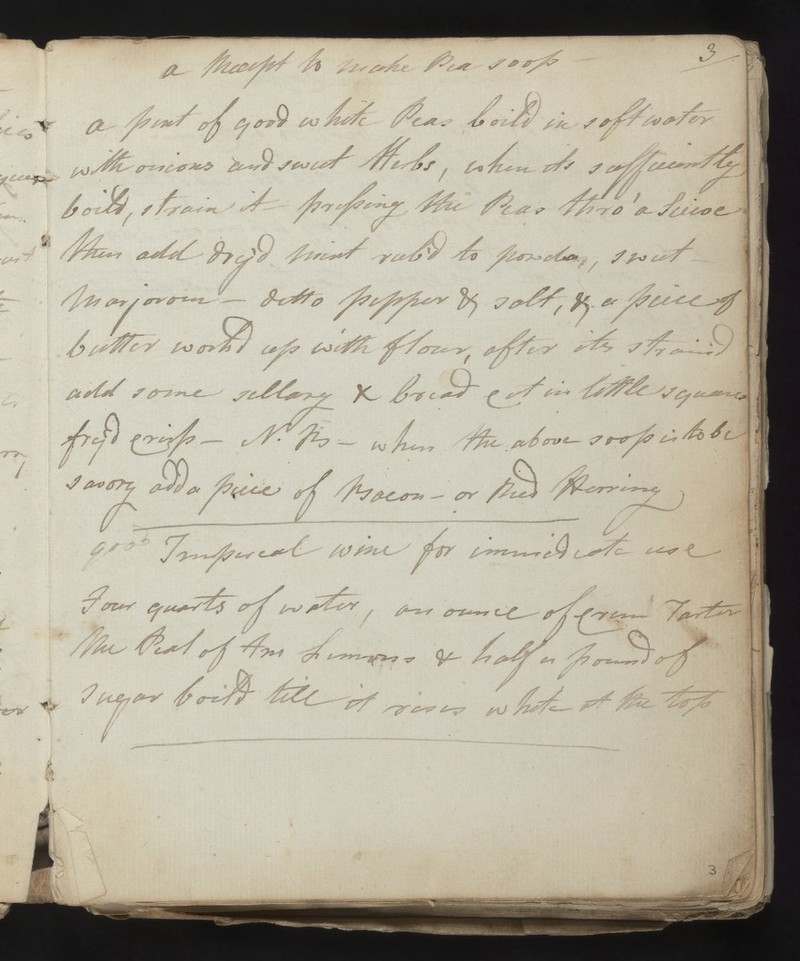 3
a Receipt to make Pea soop
a pint of good white Peas boild in soft water
with onions and sweet Herbs, when its sufficiently
boild, strain it pressing the Peas thro' a Seive
then add dry'd mint rub'd to powder, sweet
Marjorom - ditto pepper & salt, & a peice of
butter work'd up with flour, after its strain'd
add some sellary & bread cut in little squares
fry'd crisp - N. B - when the above soop is to be
savory add a peice of Bacon - or Red Herring
good Imperial wine for immidiate use
Four quarts of water, an ounce of Crem Tarter
the Peal of Lemons & half a pound of
sugar boild till it rises white at the top
3